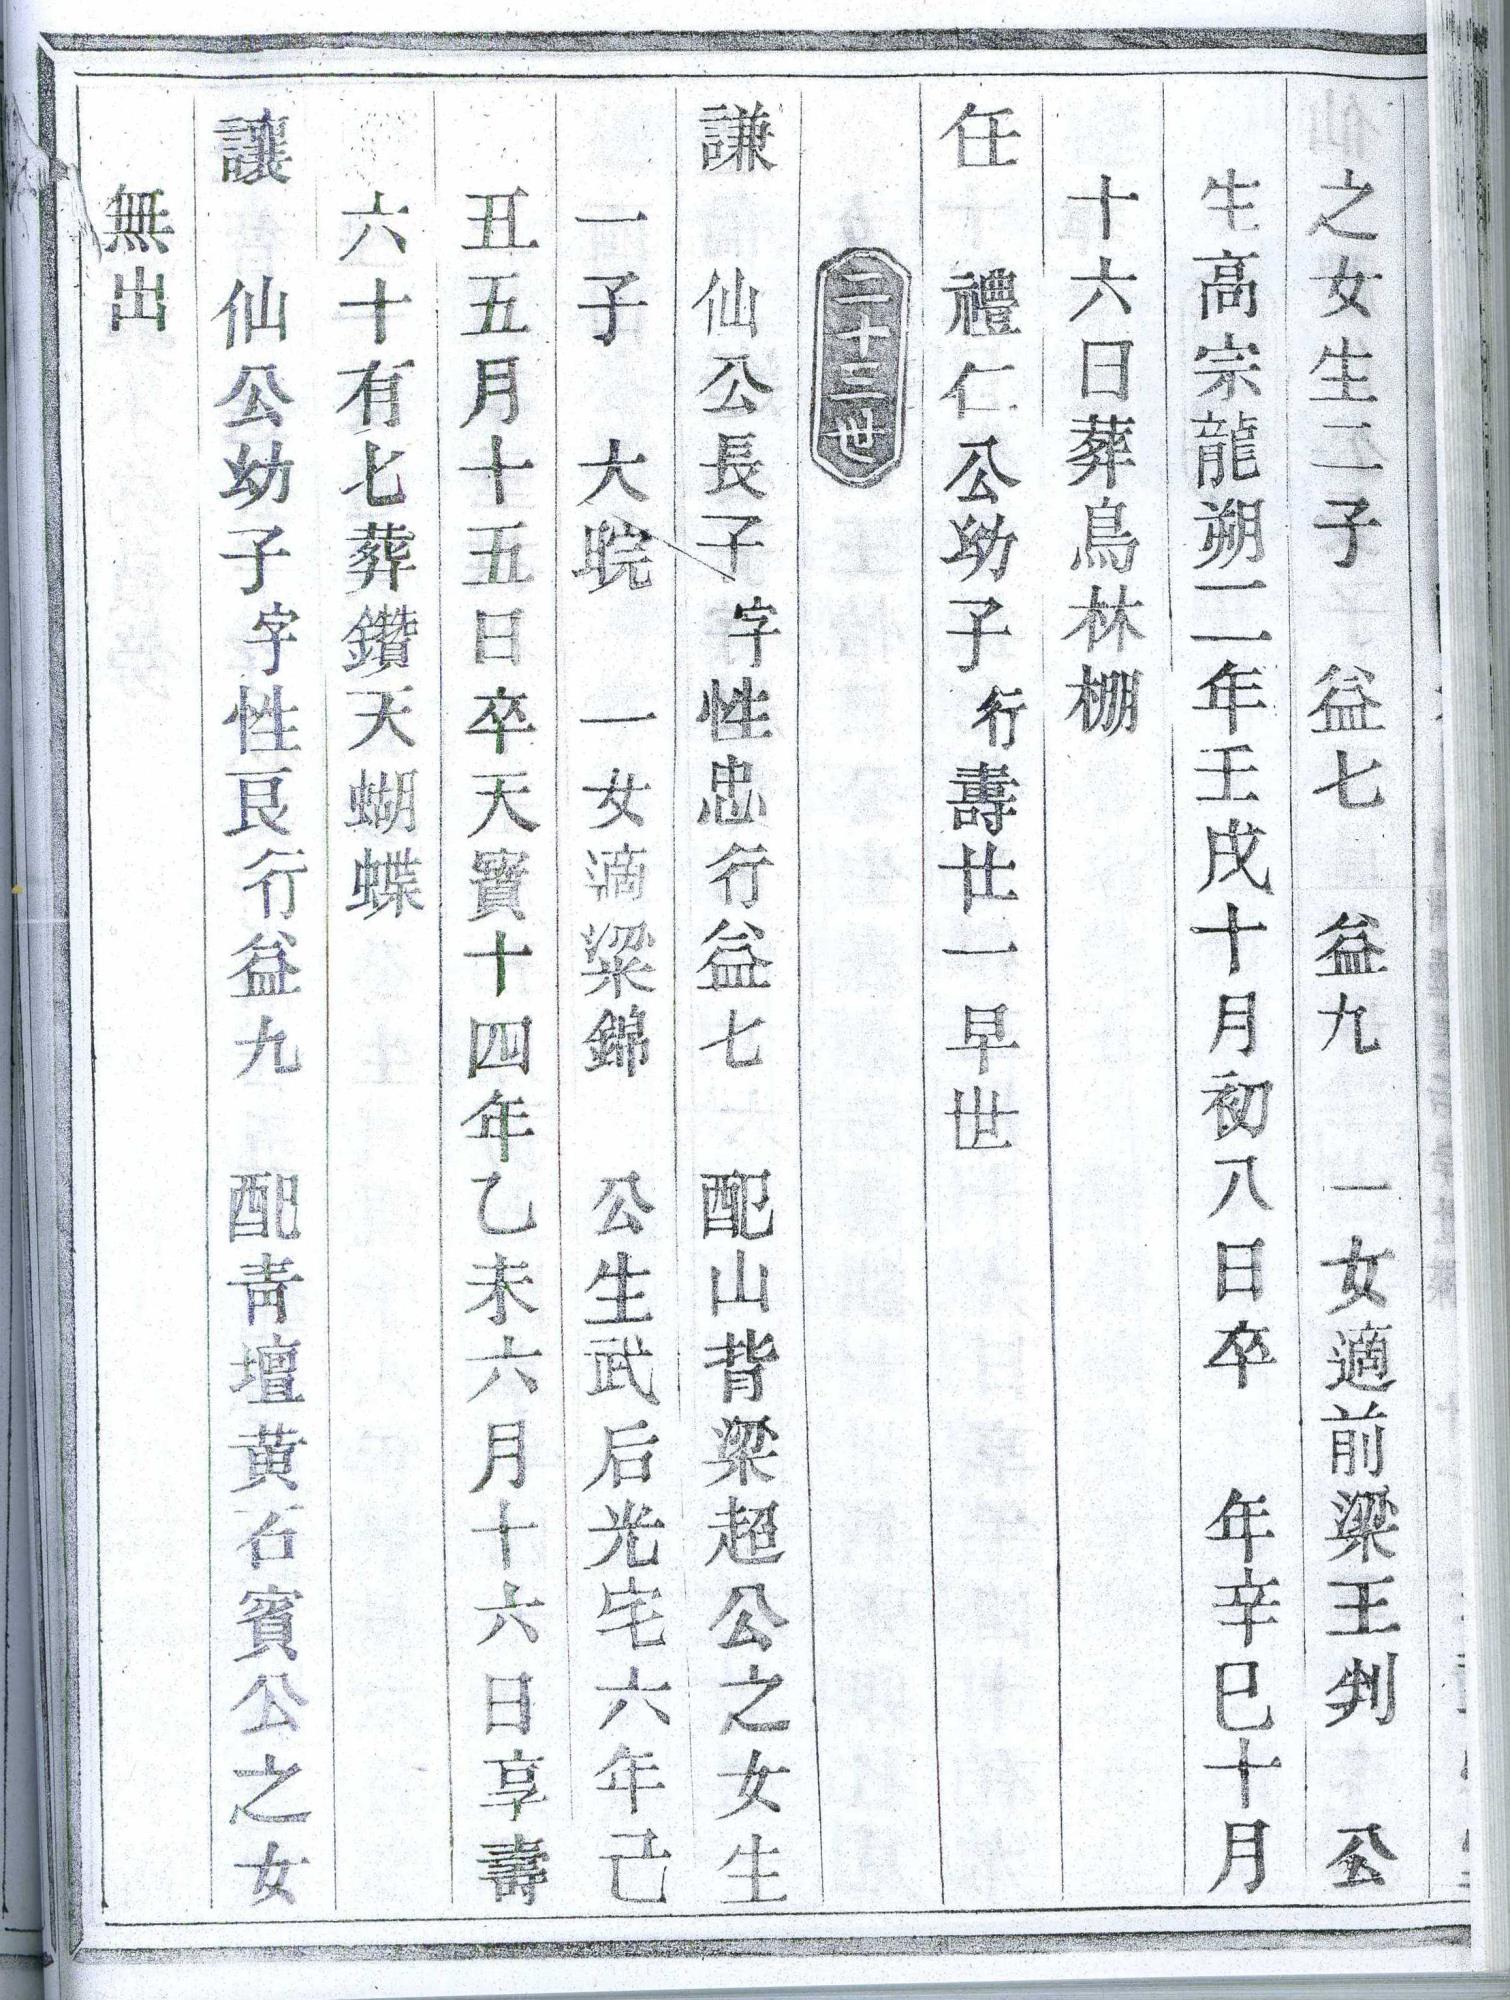 之女生二子　益七　益九　一女適前梁王判　公
生高宗龍朔二年壬戌十月初八日卒　年辛巳十月
十六日葬鳥林棚
任　禮仁公幼子行壽廿一早世
二十三世
謙　仙公長子字性忠行益七　配山背梁超公之女生
一子　大晥　一女適梁錦　公生武后光宅六年己
丑五月十五日卒天寶十四年乙未六月十六日享壽
六十有七葬鑽天蝴蝶
讓　仙公幼子字性良行益九　配青壇黄石賓公之女
無出